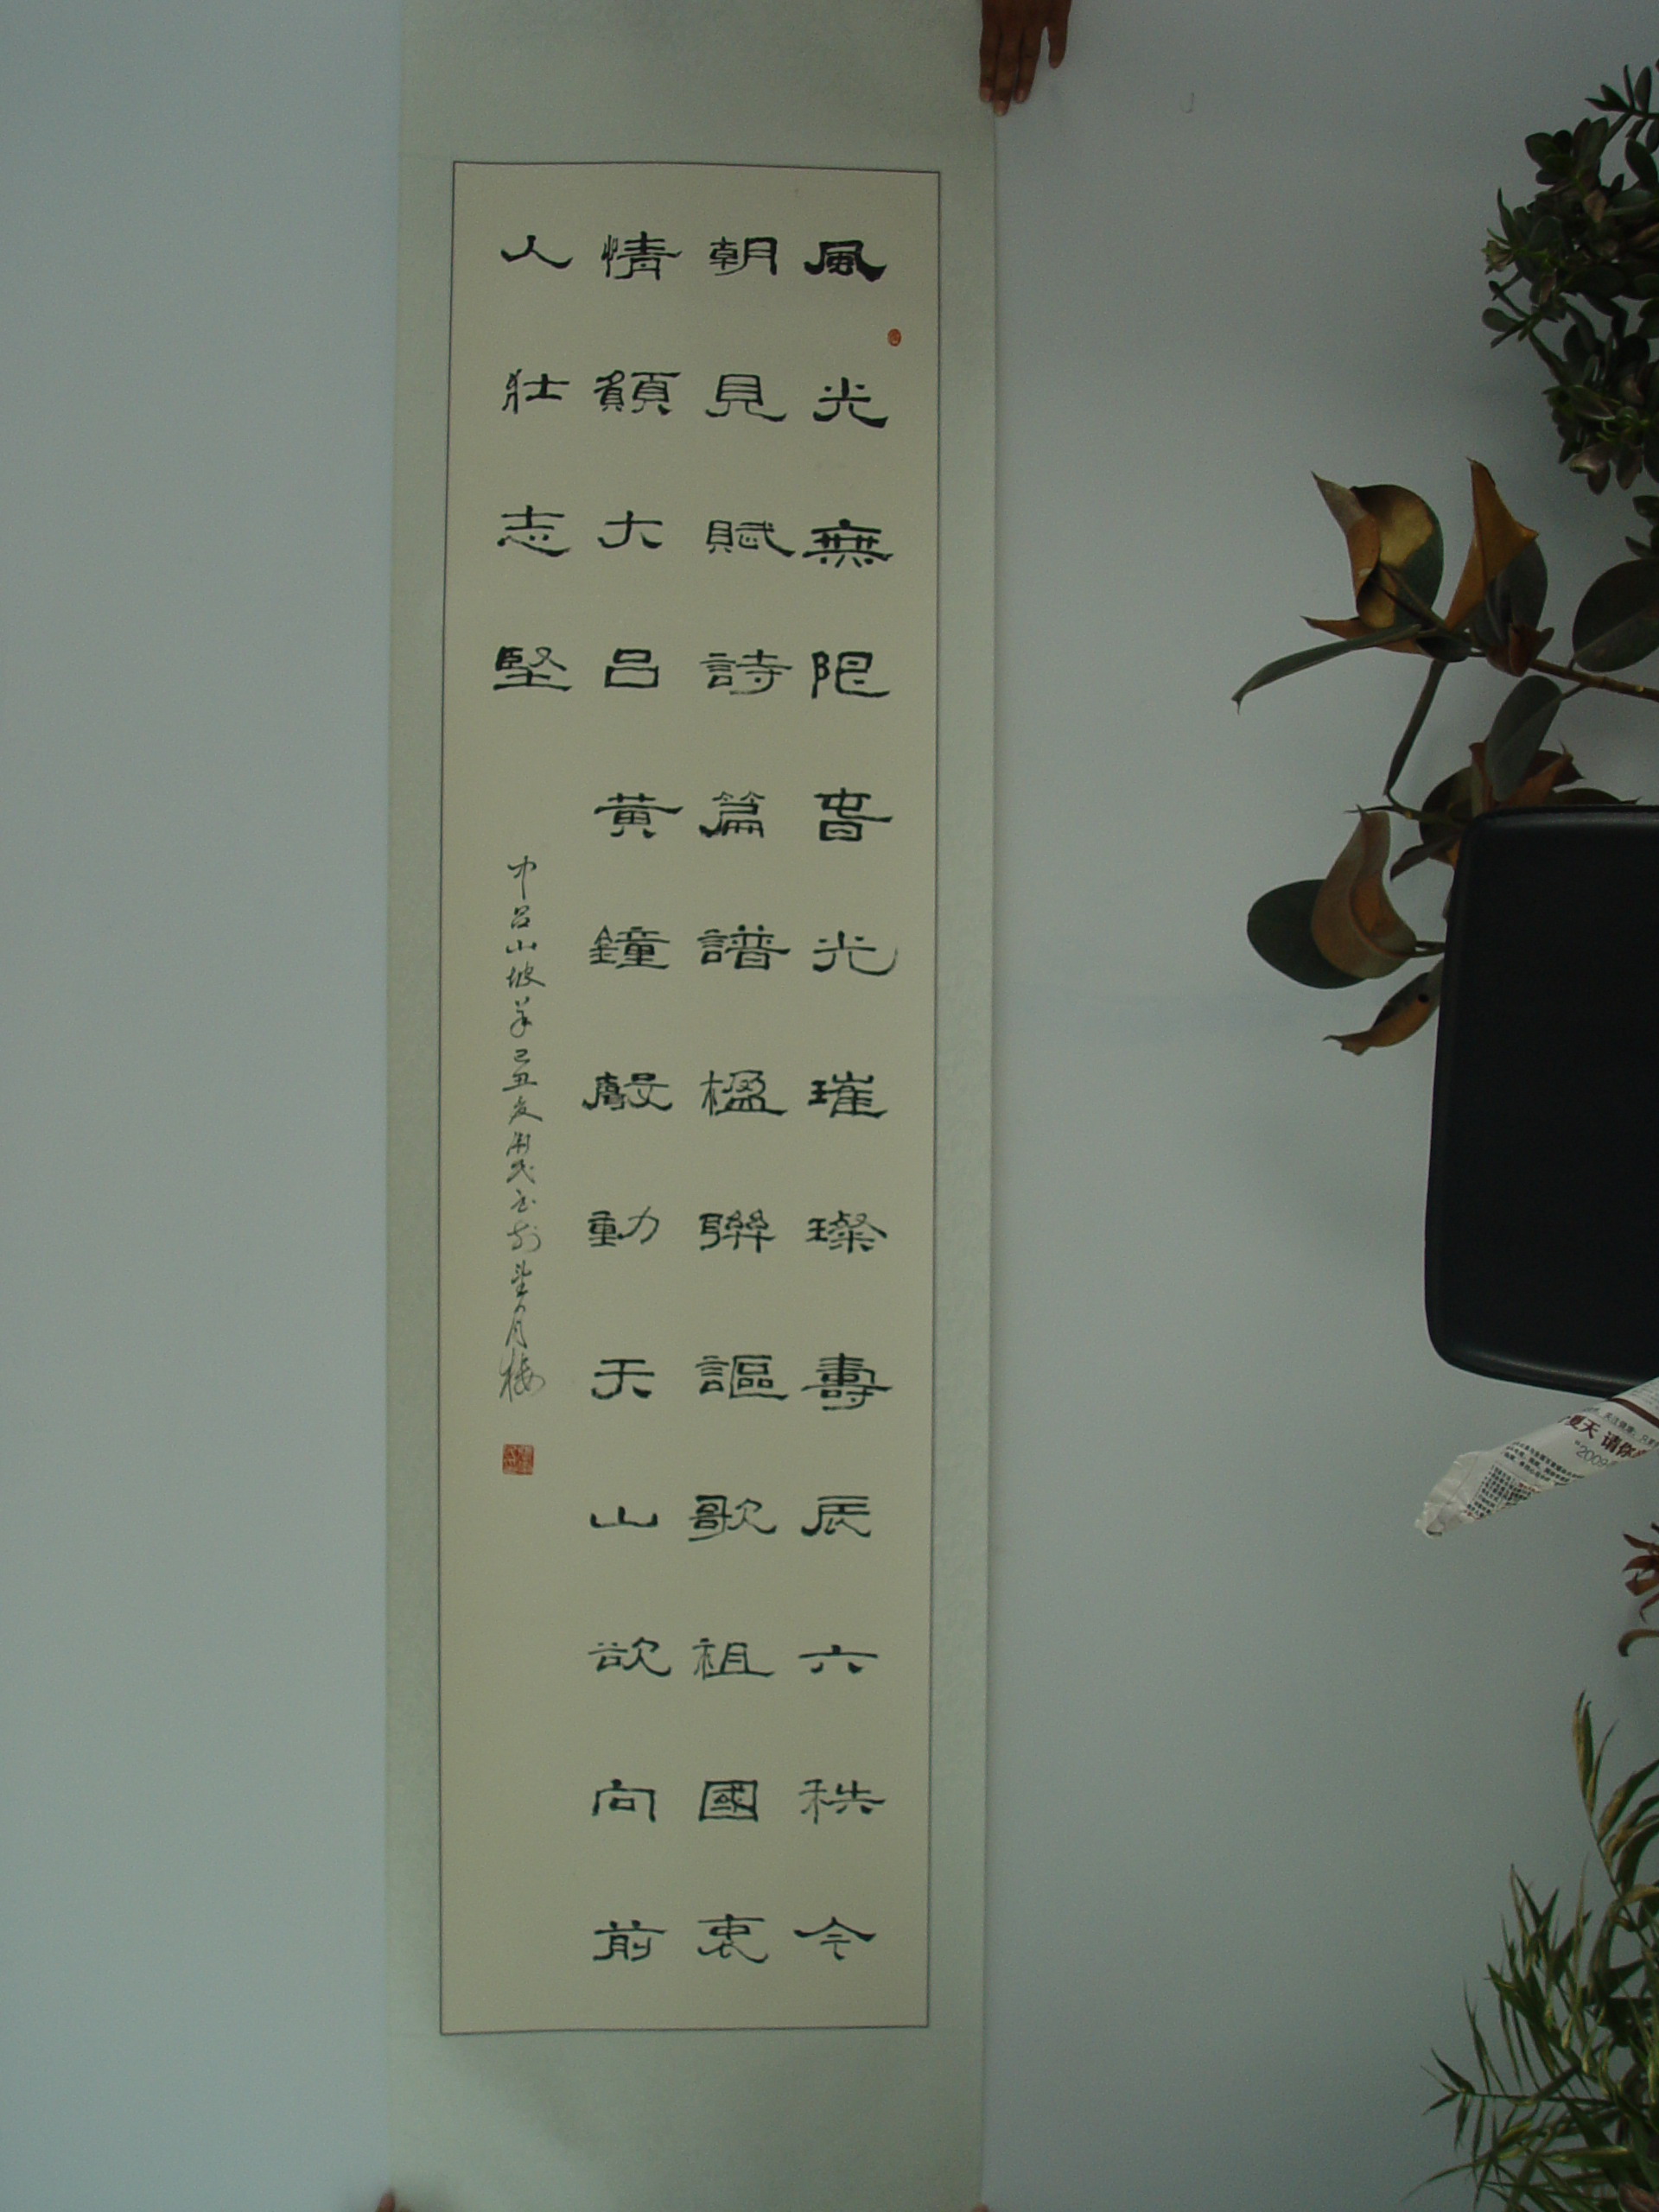 風光無限春光璀璨壽辰六秩今
朝見賦詩篇譜楹聯謳歌祖國衷
情顏大呂黃鐘聲動天山欲向前
人壯志堅
中呂山坡羊己丑夏
夏天 请你
"2009